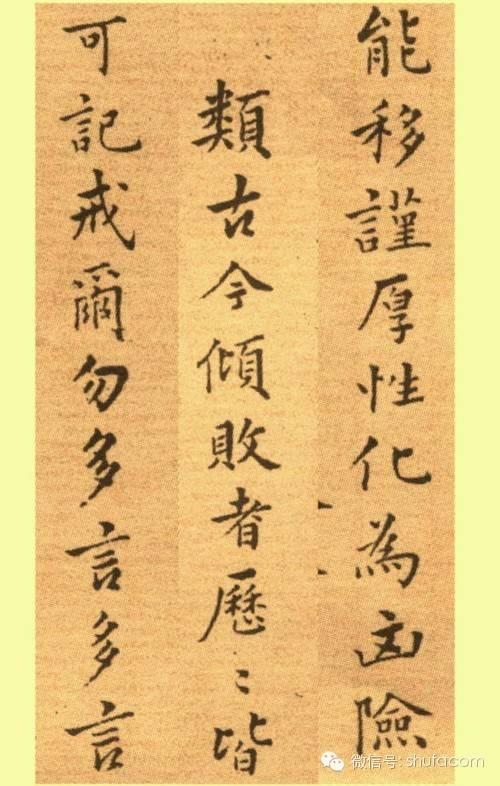 能移謹厚性化為凶險
類古今傾敗者歷〻皆
可記戒爾勿多言多言
微信号: shufacom